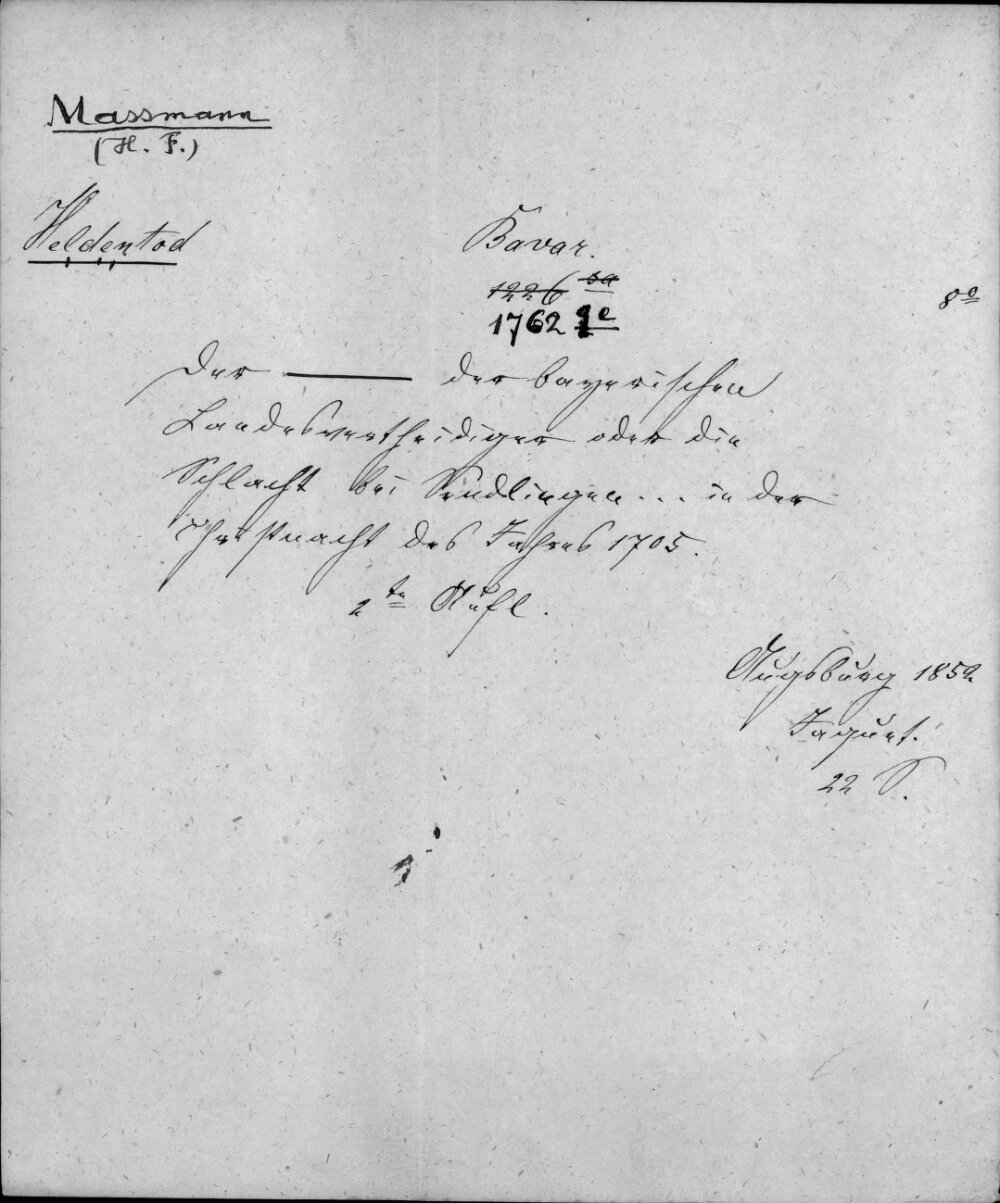 Massmann
(H. F.)
Heldentod
Bavar.
1226 sa
1762 qe
8o
Der ——— der bayerischen
Landesvertheidiger oder die
Schlacht bei Sendlingen... in der
Christnacht des Jahres 1705.
2te Aufl.
Augsburg 1852
Jaquet.
22 S.